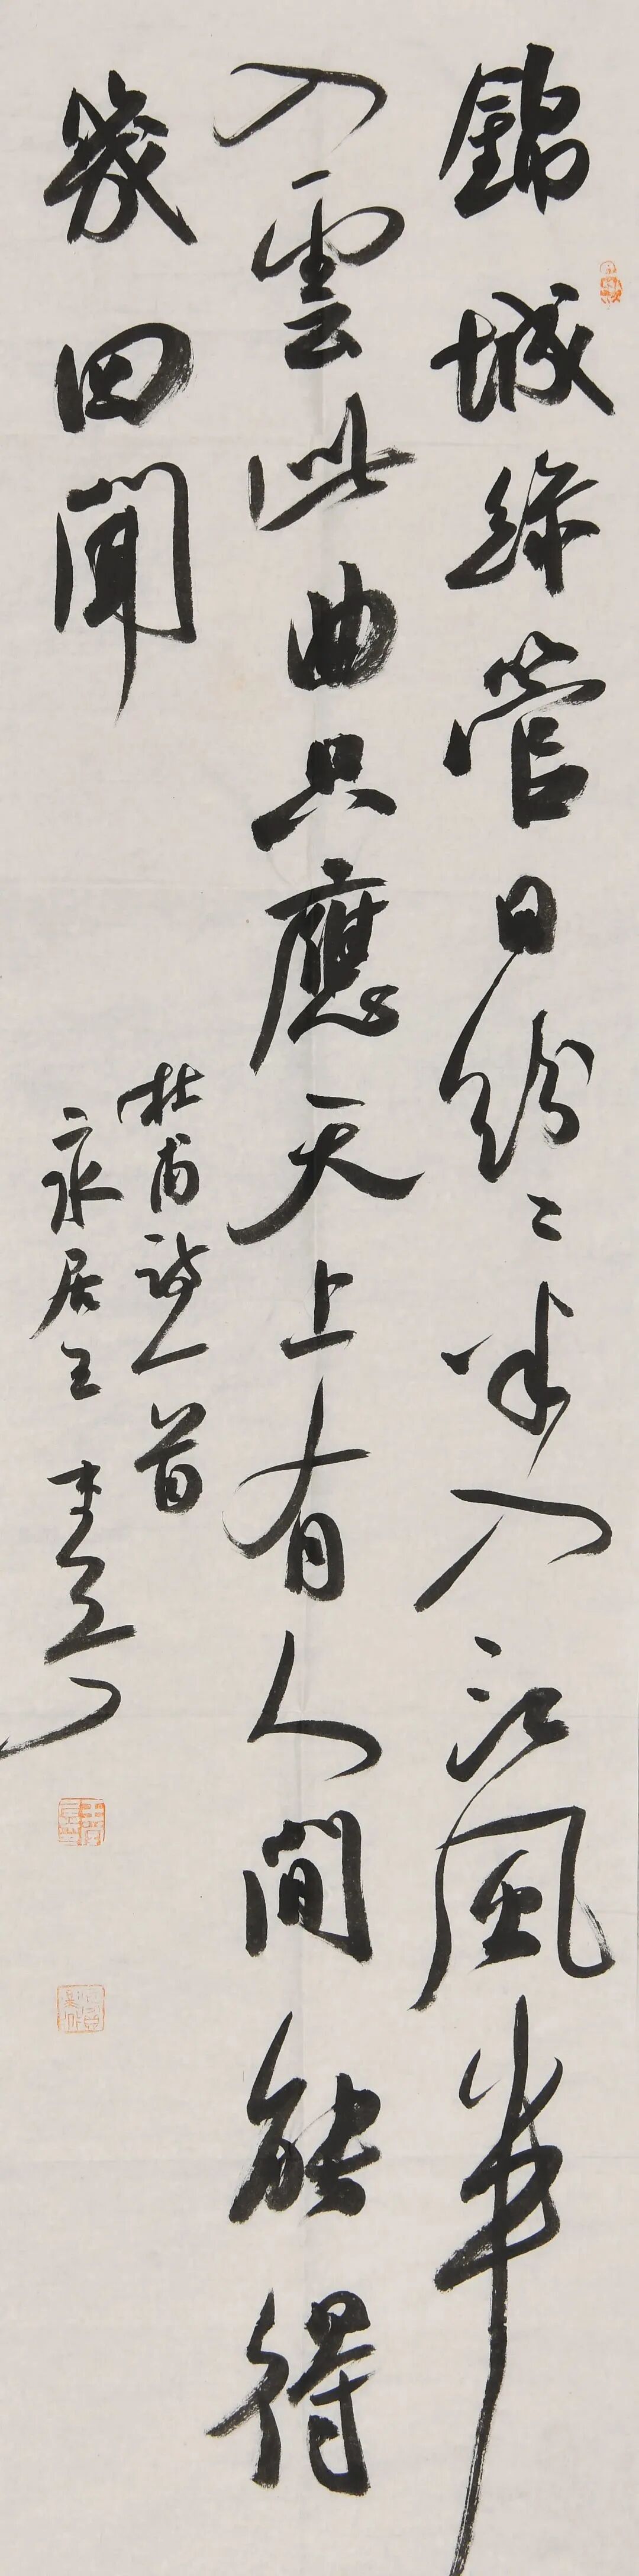 錦城絲管日紛〻半入江風半
入雲此曲只應天上有人間能得
幾回聞
杜甫詩一首
永居王